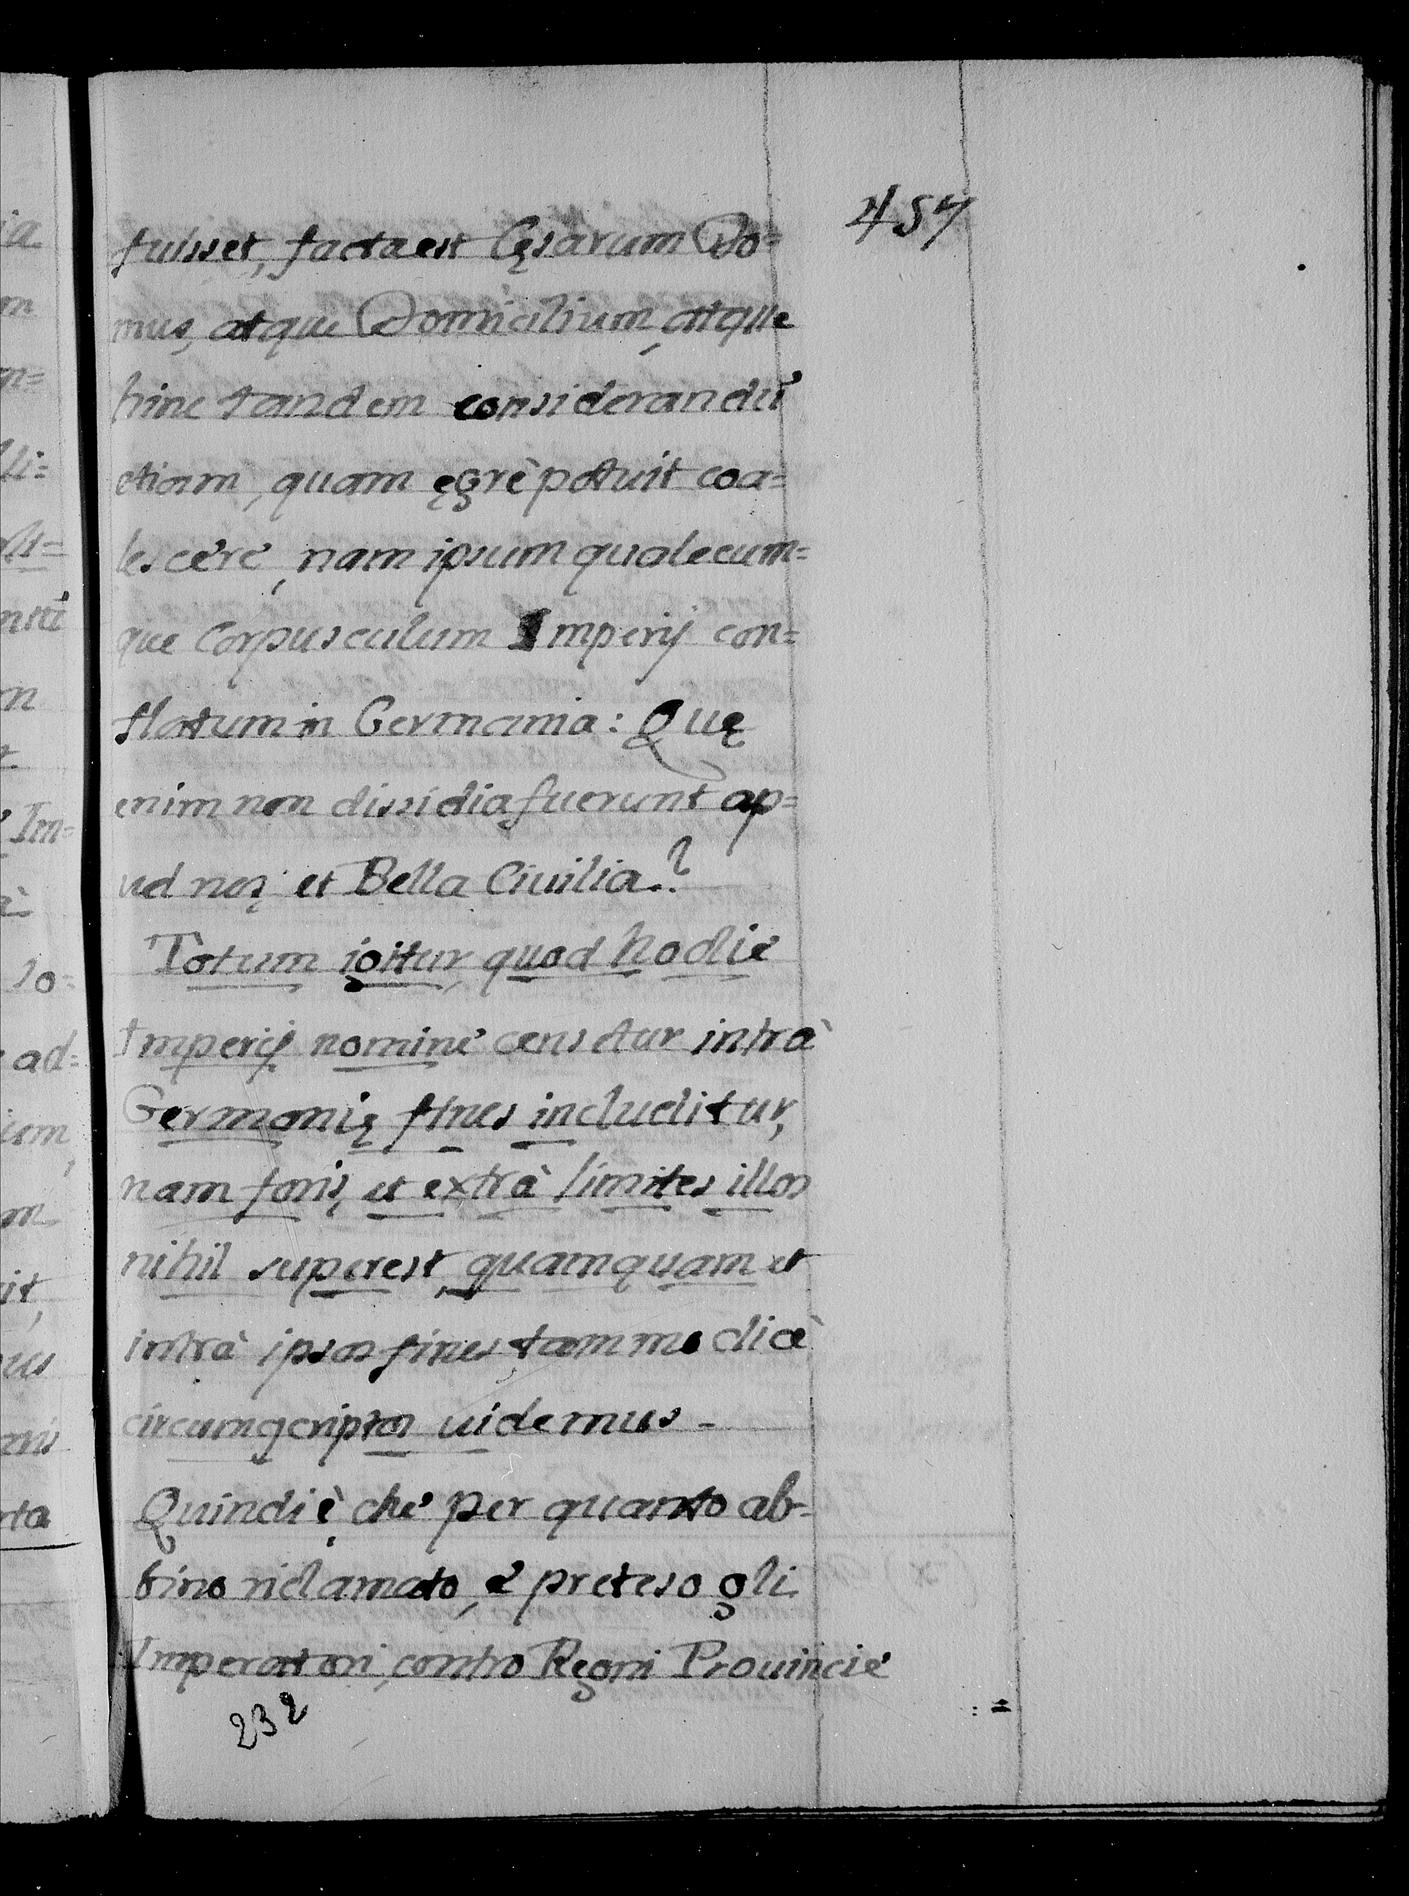 457
fuisset, facta est Cęsarum Do=
mus, atque Domicilium, atque
hinc tandem considerandũ
etiam, quam ęgrè potuit coa=
lescere, nam ipsum qualecum=
que Corpusculum Imperij con=
flatum in Germania: Quę
enim non dissidia fuerunt ap=
ud nos, et Bella Ciuilia.?
Totum igitur, quod hodie
Imperij nomine censetur intrà
Germanię fines includitur,
nam foris, et extrà limites illos
nihil superest, quamquam et
intrà ipsos fines tam modicè
circumscriptos uidemus -
Quindi è che per quanto ab-
bino riclamato, e preteso gli
Imperatori, contro Regni Prouincie
232